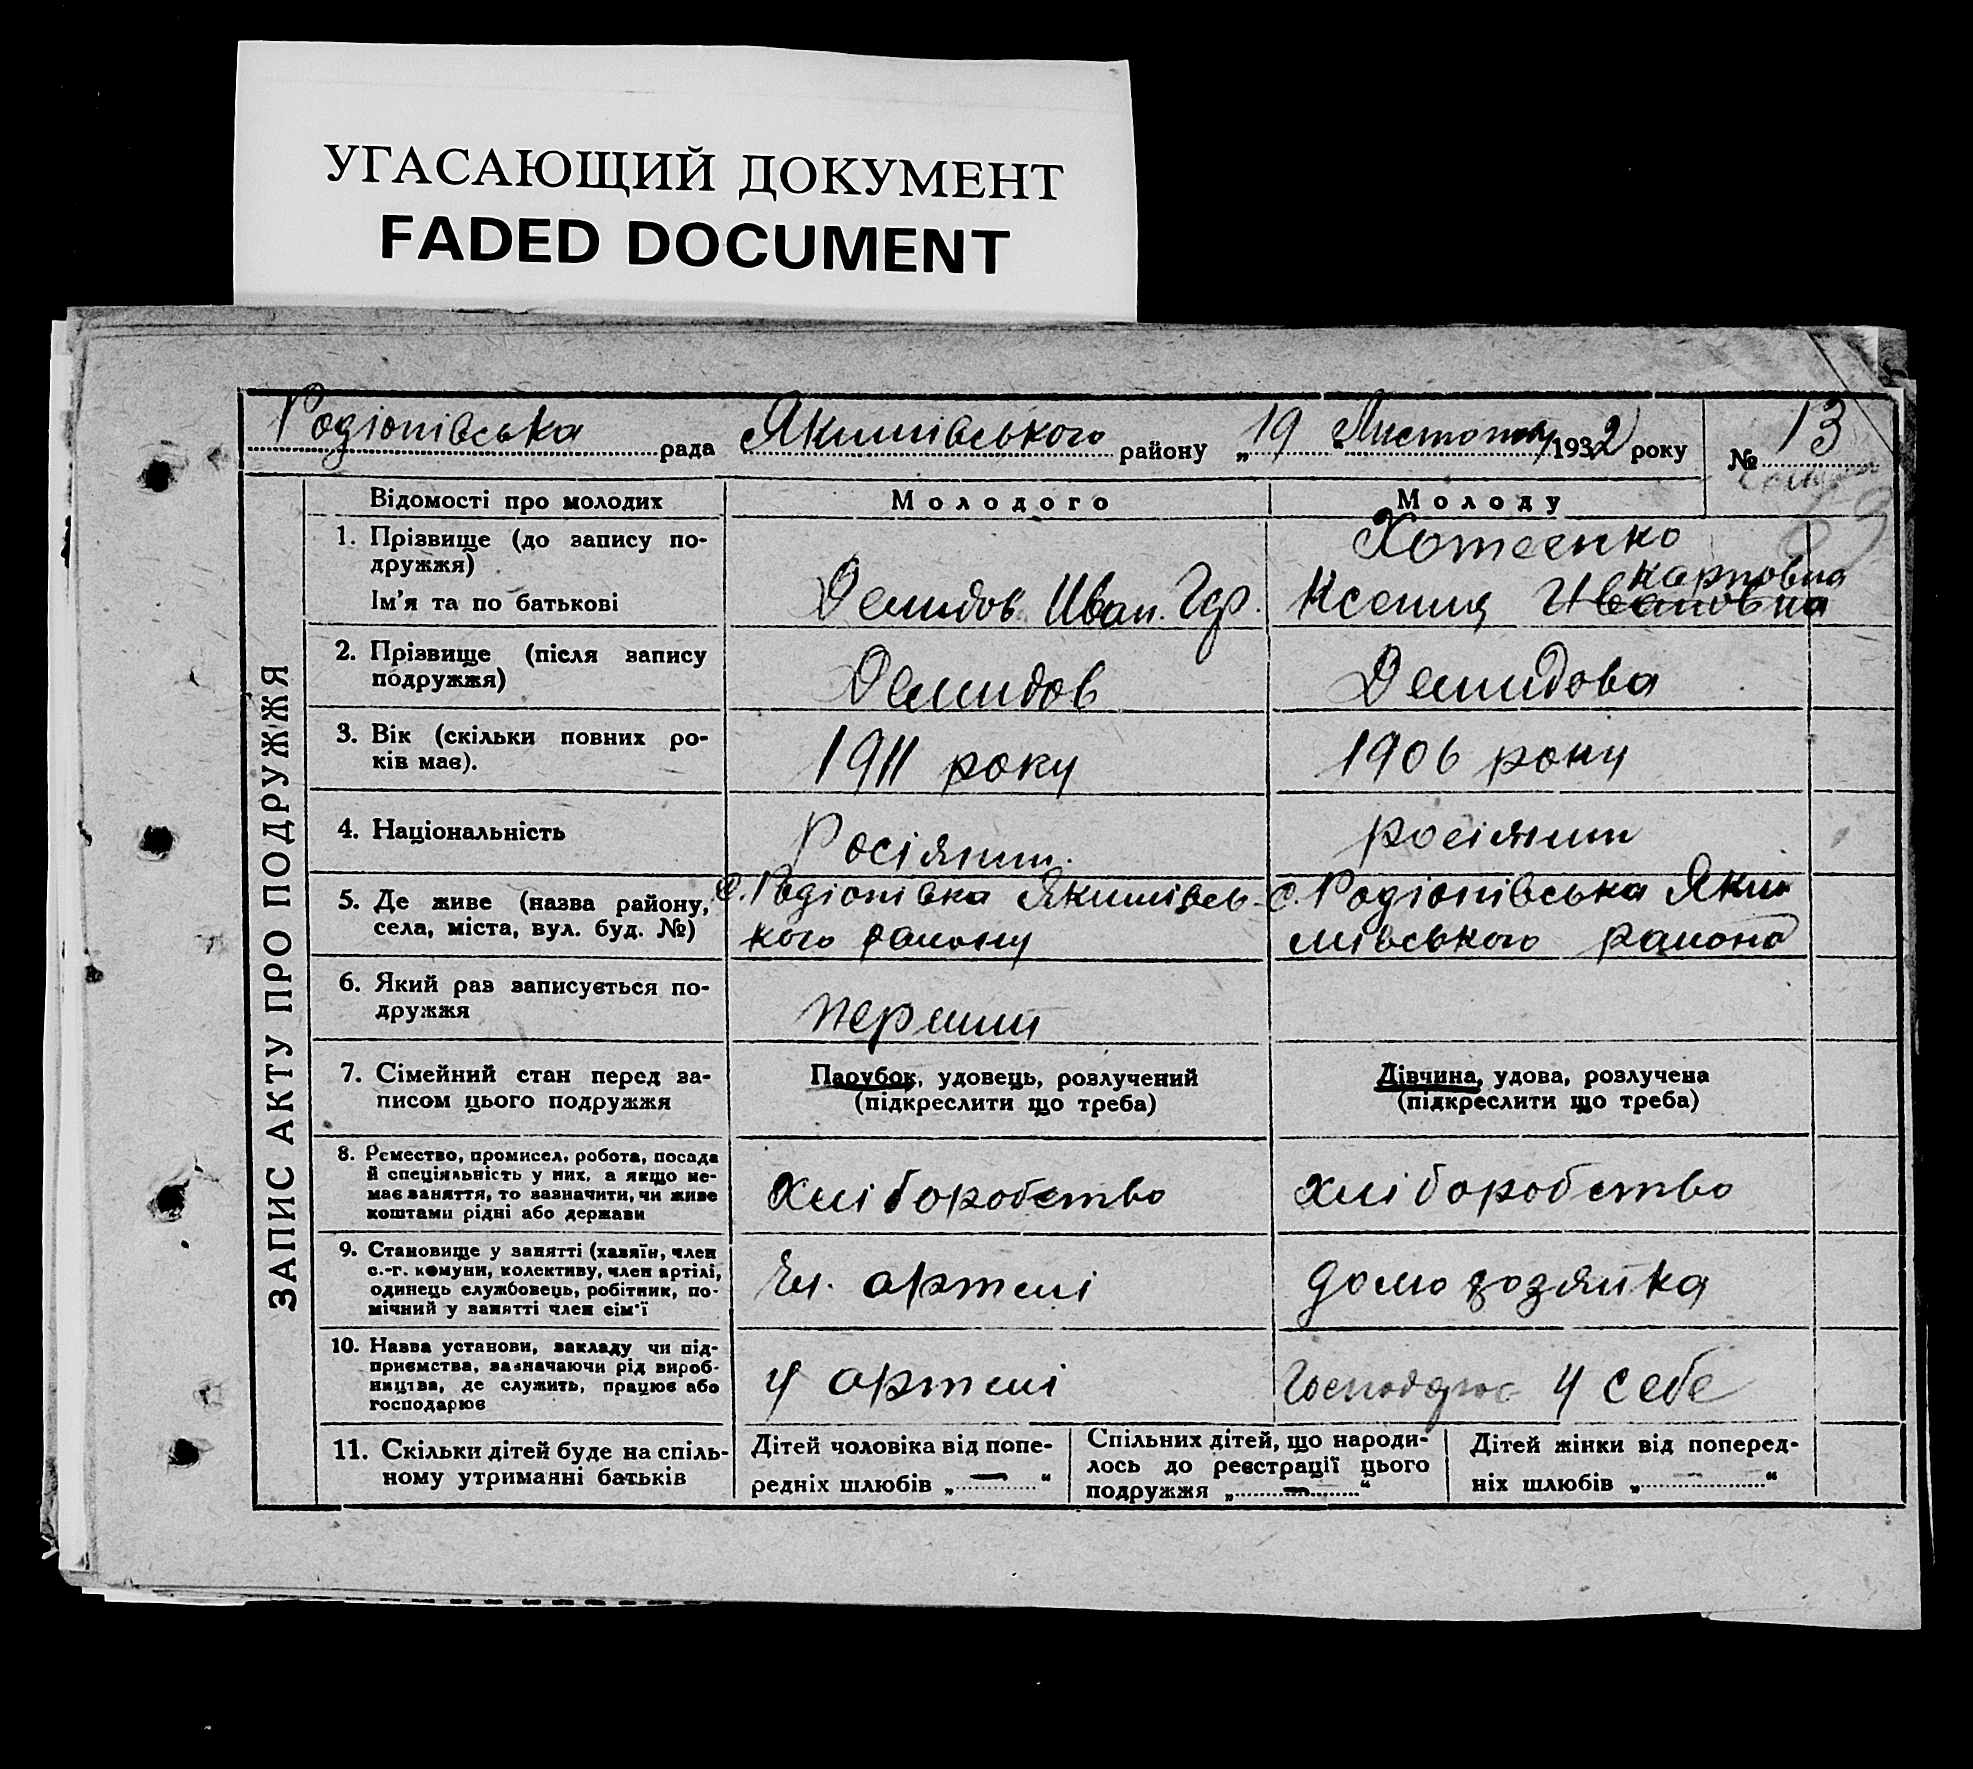 УГАСАЮЩИЙ ДОКУМЕНТ
FADED DOCUMENT
Родіонівська рада Якимівського району „19 Листопада 1932 року № 13
ЗАПИС АКТУ ПРО ПОДРУЖЖЯ
Відомості про молодих
Молодого
Молоду
1. Прізвище (до запису по-
дружжя)
Ім'я та по батькові
Демидов Иван. Гр.
Хотеенко
Карповна
Ксения Ивановна
2. Прізвище (після запису
подружжя)
Демидов
Демидова
3. Вік (скільки повних ро-
ків має).
1911 року
1906 року
4. Національність
Росіянин.
росіянин
5. Де живе (назва району,
села, міста, вул. буд. №)
с. Родіонівка Якимівсь-
кого району
с. Родіонівська Яки
мівського района
6. Який раз записується по-
дружжя
перший
7. Сімейний стан перед за-
писом цього подружжя
Парубок, удовець, розлучений
(підкреслити що треба)
Дівчина, удова, розлучена
(підкреслити що треба)
8. Ремество, промисел, робота, посада
й спеціяльність у них, а якщо не-
має заняття, то зазначити, чи живе
коштами рідні або держави
хліборобство
хліборобство
9. Становище у занятті (хазяїн, член
с.-г. комуни, колективу, член артілі,
одинець службовець, робітник, по-
мічний у занятті член сім'ї
Чл. артелі
домохозяйка
10. Назва установи, закладу чи під-
приємства, зазначаючи рід вироб-
ництва, де служить, працює або
господарює
у артелі
у себе
11. Скільки дітей буде на спіль-
ному утриманні батьків
Дітей чоловіка від попе-
редніх шлюбів „ — “
Спільних дітей, що народи-
лось до реєстрації цього
подружжя „ — “
Дітей жінки від поперед-
ніх шлюбів „ — “